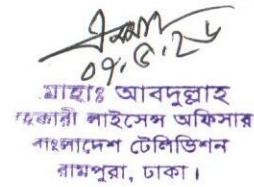 ০৭.৫.২৬
মোহাঃ আবদুল্লাহ
সহকারী লাইসেন্স অফিসার
বাংলাদেশ টেলিভিশন
রামপুরা, ঢাকা।